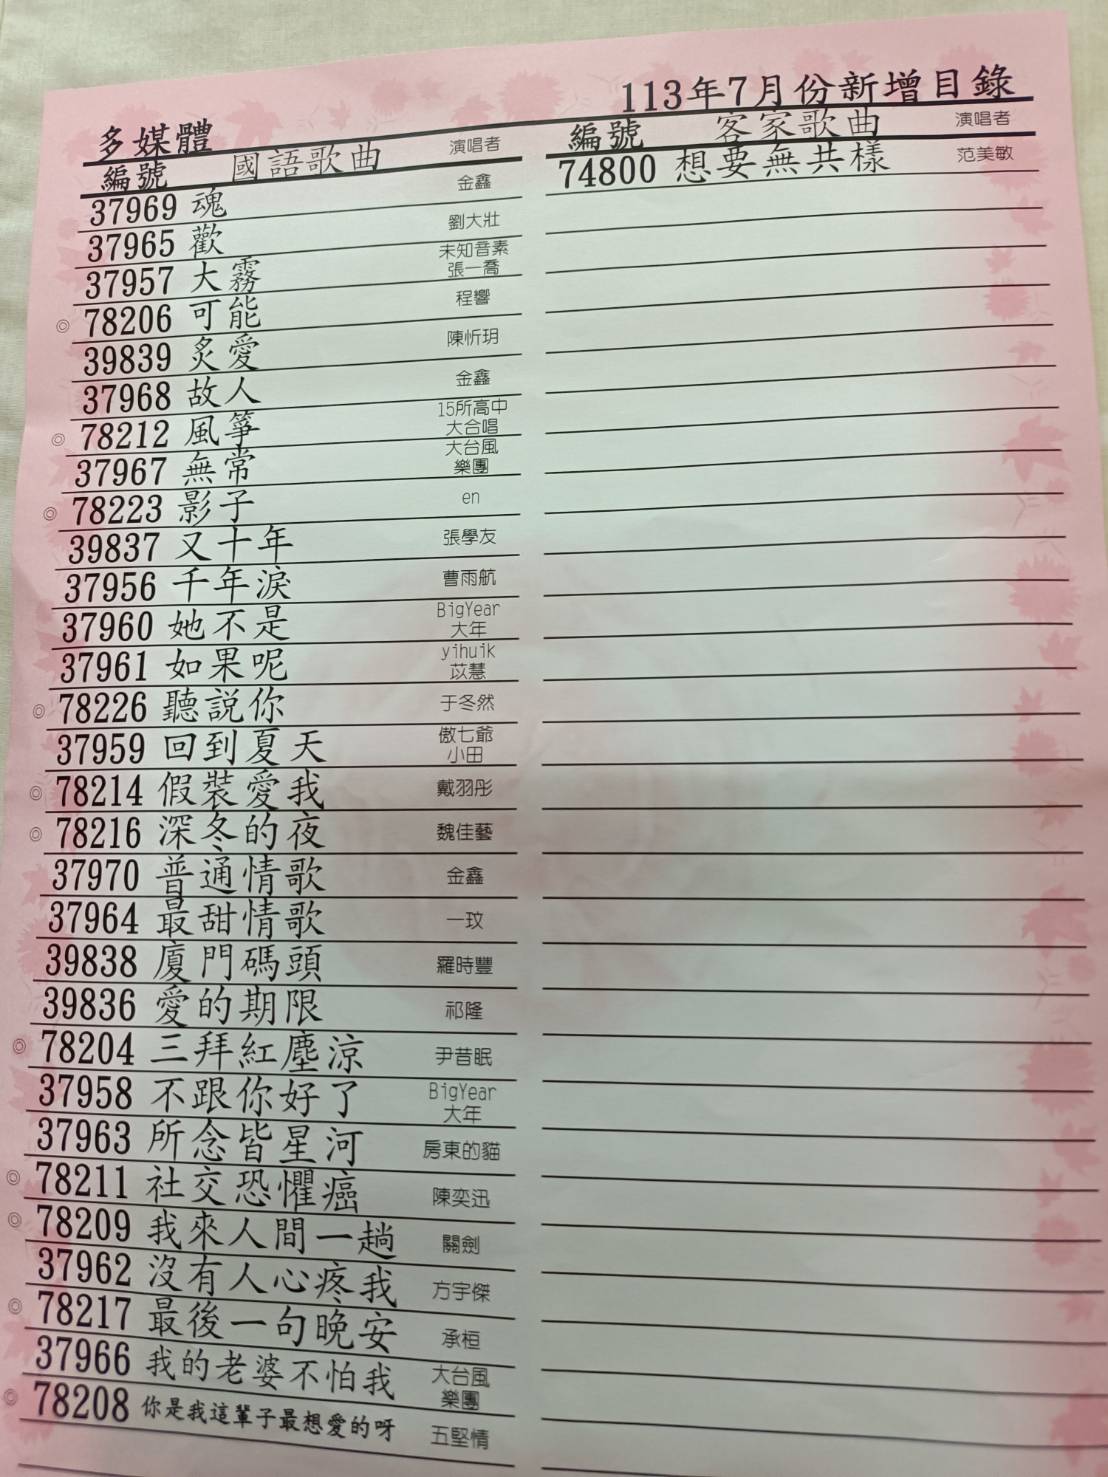 113年7月份新增目錄
多媒體
編號 國語歌曲 演唱者
37969 魂 金鑫
37965 歡 劉大壯
37957 大霧 未知音素 張一喬
◎ 78206 可能 程響
39839 炙愛 陳忻玥
37968 故人 金鑫
◎ 78212 風箏 15所高中 大合唱
37967 無常 大台風 樂團
◎ 78223 影子 en
39837 又十年 張學友
37956 千年淚 曹雨航
37960 她不是 BigYear 大年
37961 如果呢 yihuik 苡慧
◎ 78226 聽說你 于冬然
37959 回到夏天 傲七爺 小田
◎ 78214 假裝愛我 戴羽彤
◎ 78216 深冬的夜 魏佳藝
37970 普通情歌 金鑫
37964 最甜情歌 一玟
39838 廈門碼頭 羅時豐
39836 愛的期限 祁隆
◎ 78204 三拜紅塵涼 尹昔眠
37958 不跟你好了 BigYear 大年
37963 所念皆星河 房東的貓
◎ 78211 社交恐懼癌 陳奕迅
◎ 78209 我來人間一趟 關劍
37962 沒有人心疼我 方宇傑
◎ 78217 最後一句晚安 承桓
37966 我的老婆不怕我 大台風 樂團
◎ 78208 你是我這輩子最想愛的呀 五堅情
編號 客家歌曲 演唱者
74800 想要無共樣 范美敏